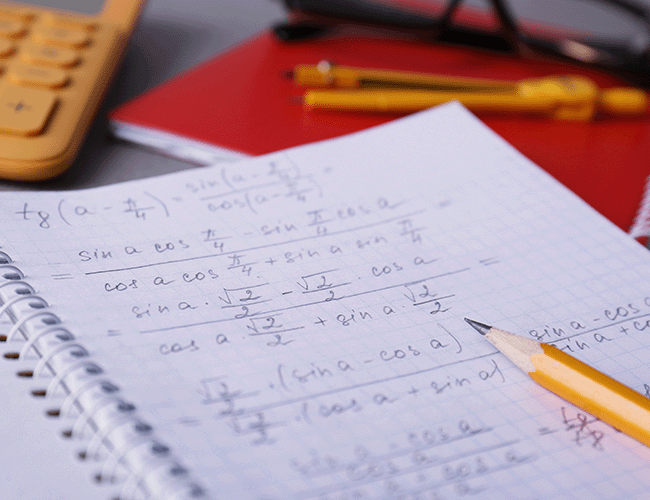 tg(a - π/4) = sin(a - π/4) / cos(a - π/4) =
= sin a cos π/4 - sin π/4 cos a / cos a cos π/4 + sin a sin π/4 =
= sin a · √2/2 - √2/2 · cos a / cos a · √2/2 + sin a · √2/2 =
√2/2 · (sin a - cos a) / √2/2 · (cos a + sin a) sin a - cos a / sin a + cos
sin a - cos a / cos a =